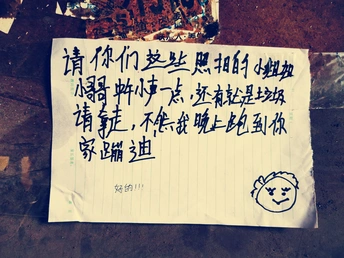 请你们这些照相的小姐姐
小哥哥中午小声一点,还有就是垃圾
请拿走,不然我晚上跑到你
家蹦迪
好的!!!